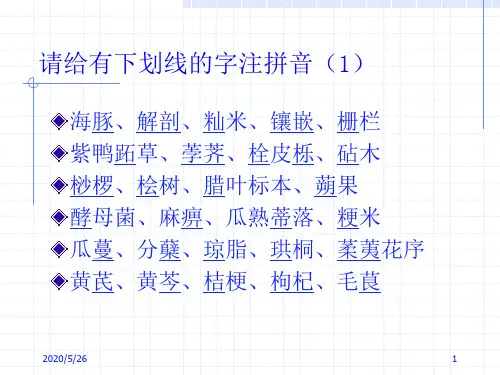 请给有下划线的字注拼音（1）
海豚、解剖、籼米、镶嵌、栅栏
紫鸭跖草、荸荠、栓皮栎、砧木
桫椤、桧树、腊叶标本、蒴果
酵母菌、麻痹、瓜熟蒂落、粳米
瓜蔓、分蘖、琼脂、珙桐、葇荑花序
黄芪、黄芩、桔梗、枸杞、毛茛
2020/5/26
1